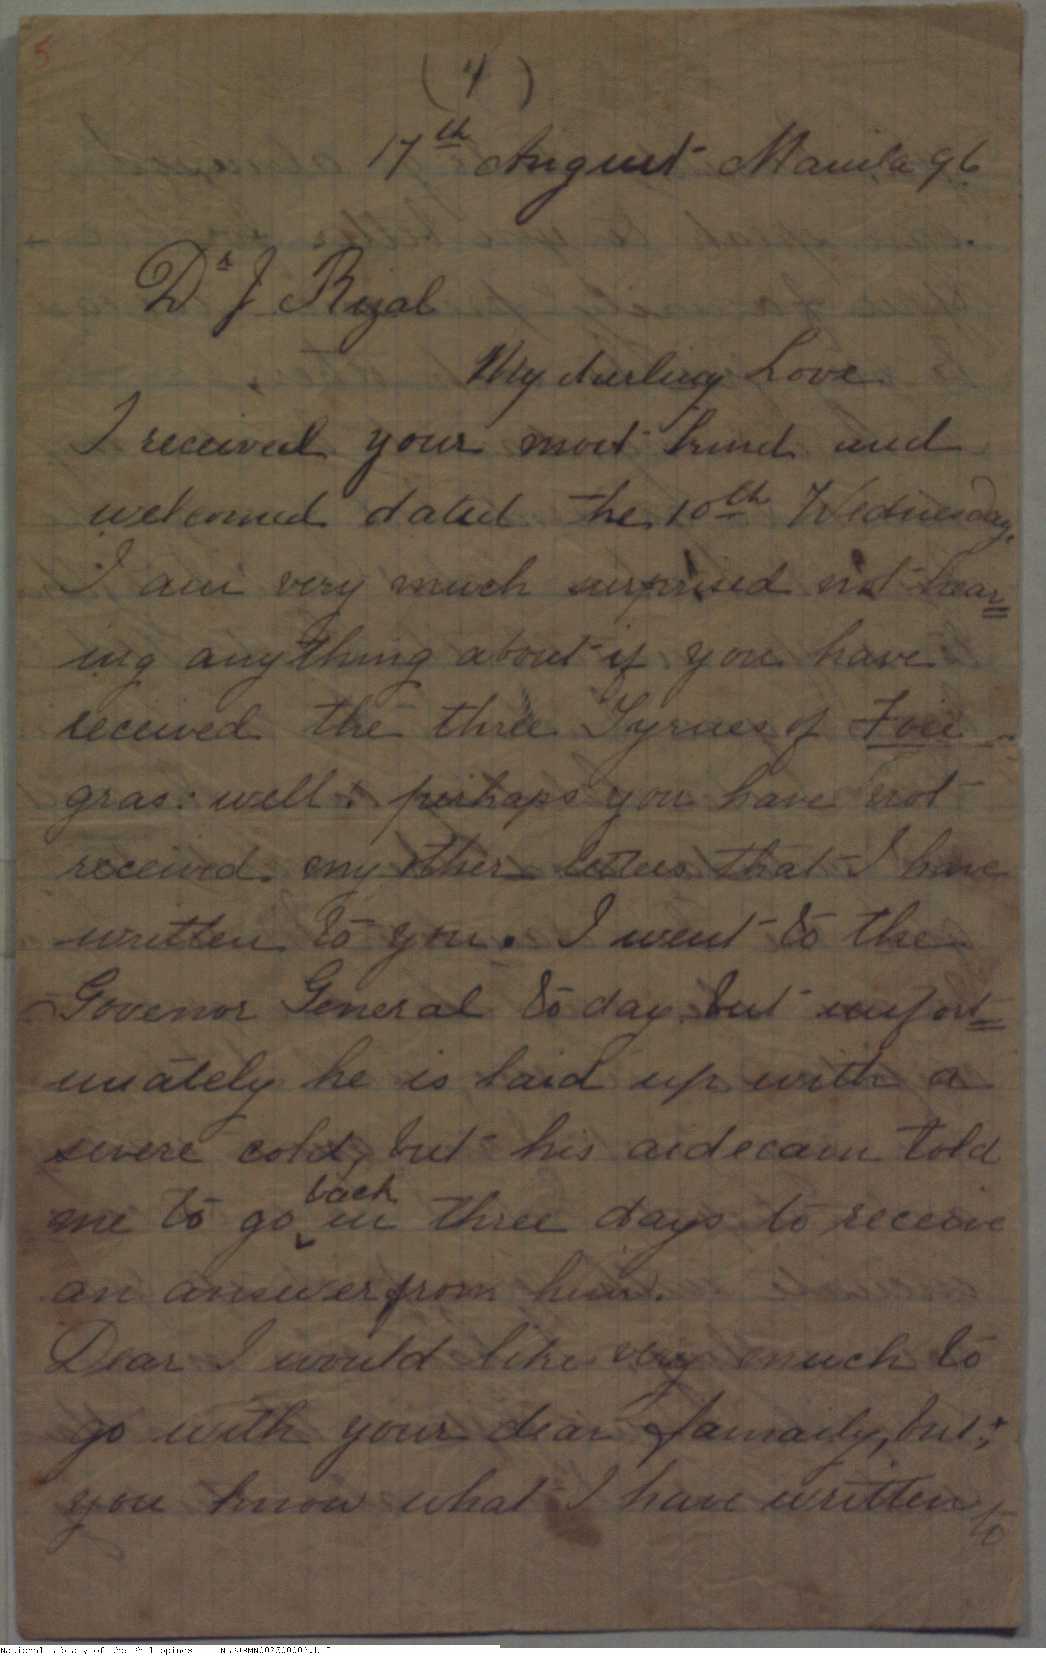 5
(4)
17th August Manila 96
Dr J Rizal
My darling Love
I received your most kind and
welcomed dated the 10th Wednesday,
I am very much surprised not hear=
ing anything about if you have
received the three Tyrnes of Foie -
gras: well: perhaps you have not
received my other letters that I have
written to you. I went to the
Govenor General to day but unfort=
unately he is laid up with a
severe cold, but his aidecam told
me to go back in three days to receive
an answer from him.
Dear I would like very much to
go with your dear famaily, but;
you know what I have written to
National Library of the Philippines